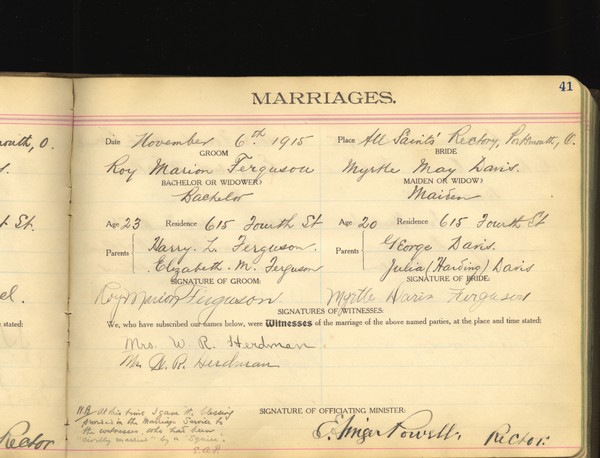 41
MARRIAGES.
Date November 6.th 1915 Place All Saints' Rectory, Portsmouth, O.
GROOM BRIDE
Roy Marion Ferguson Myrtle May Davis.
BACHELOR OR WIDOWER? MAIDEN OR WIDOW?
Bachelor Maiden
Age 23 Residence 615 Fourth St Age 20 Residence 615 Fourth St
Parents Harry. L. Ferguson. Parents George Davis.
Elizabeth. M. Ferguson Julia (Harding) Davis
SIGNATURE OF GROOM: SIGNATURE OF BRIDE:
Roy Marion Ferguson Myrtle Davis Ferguson
SIGNATURES OF WITNESSES:
We, who have subscribed our names below, were Witnesses of the marriage of the above named parties, at the place and time stated:
Mrs. W. R. Herdman
Mr W. R. Herdman
SIGNATURE OF OFFICIATING MINISTER:
N.B. At this time I gave the blessing
provided in the Marriage Service to
the witnesses who had been
"civilly married" by a 'Squire.
E.A.P.
Powell. Rector.
outh, O.
t St.
el.
e stated:
Rector